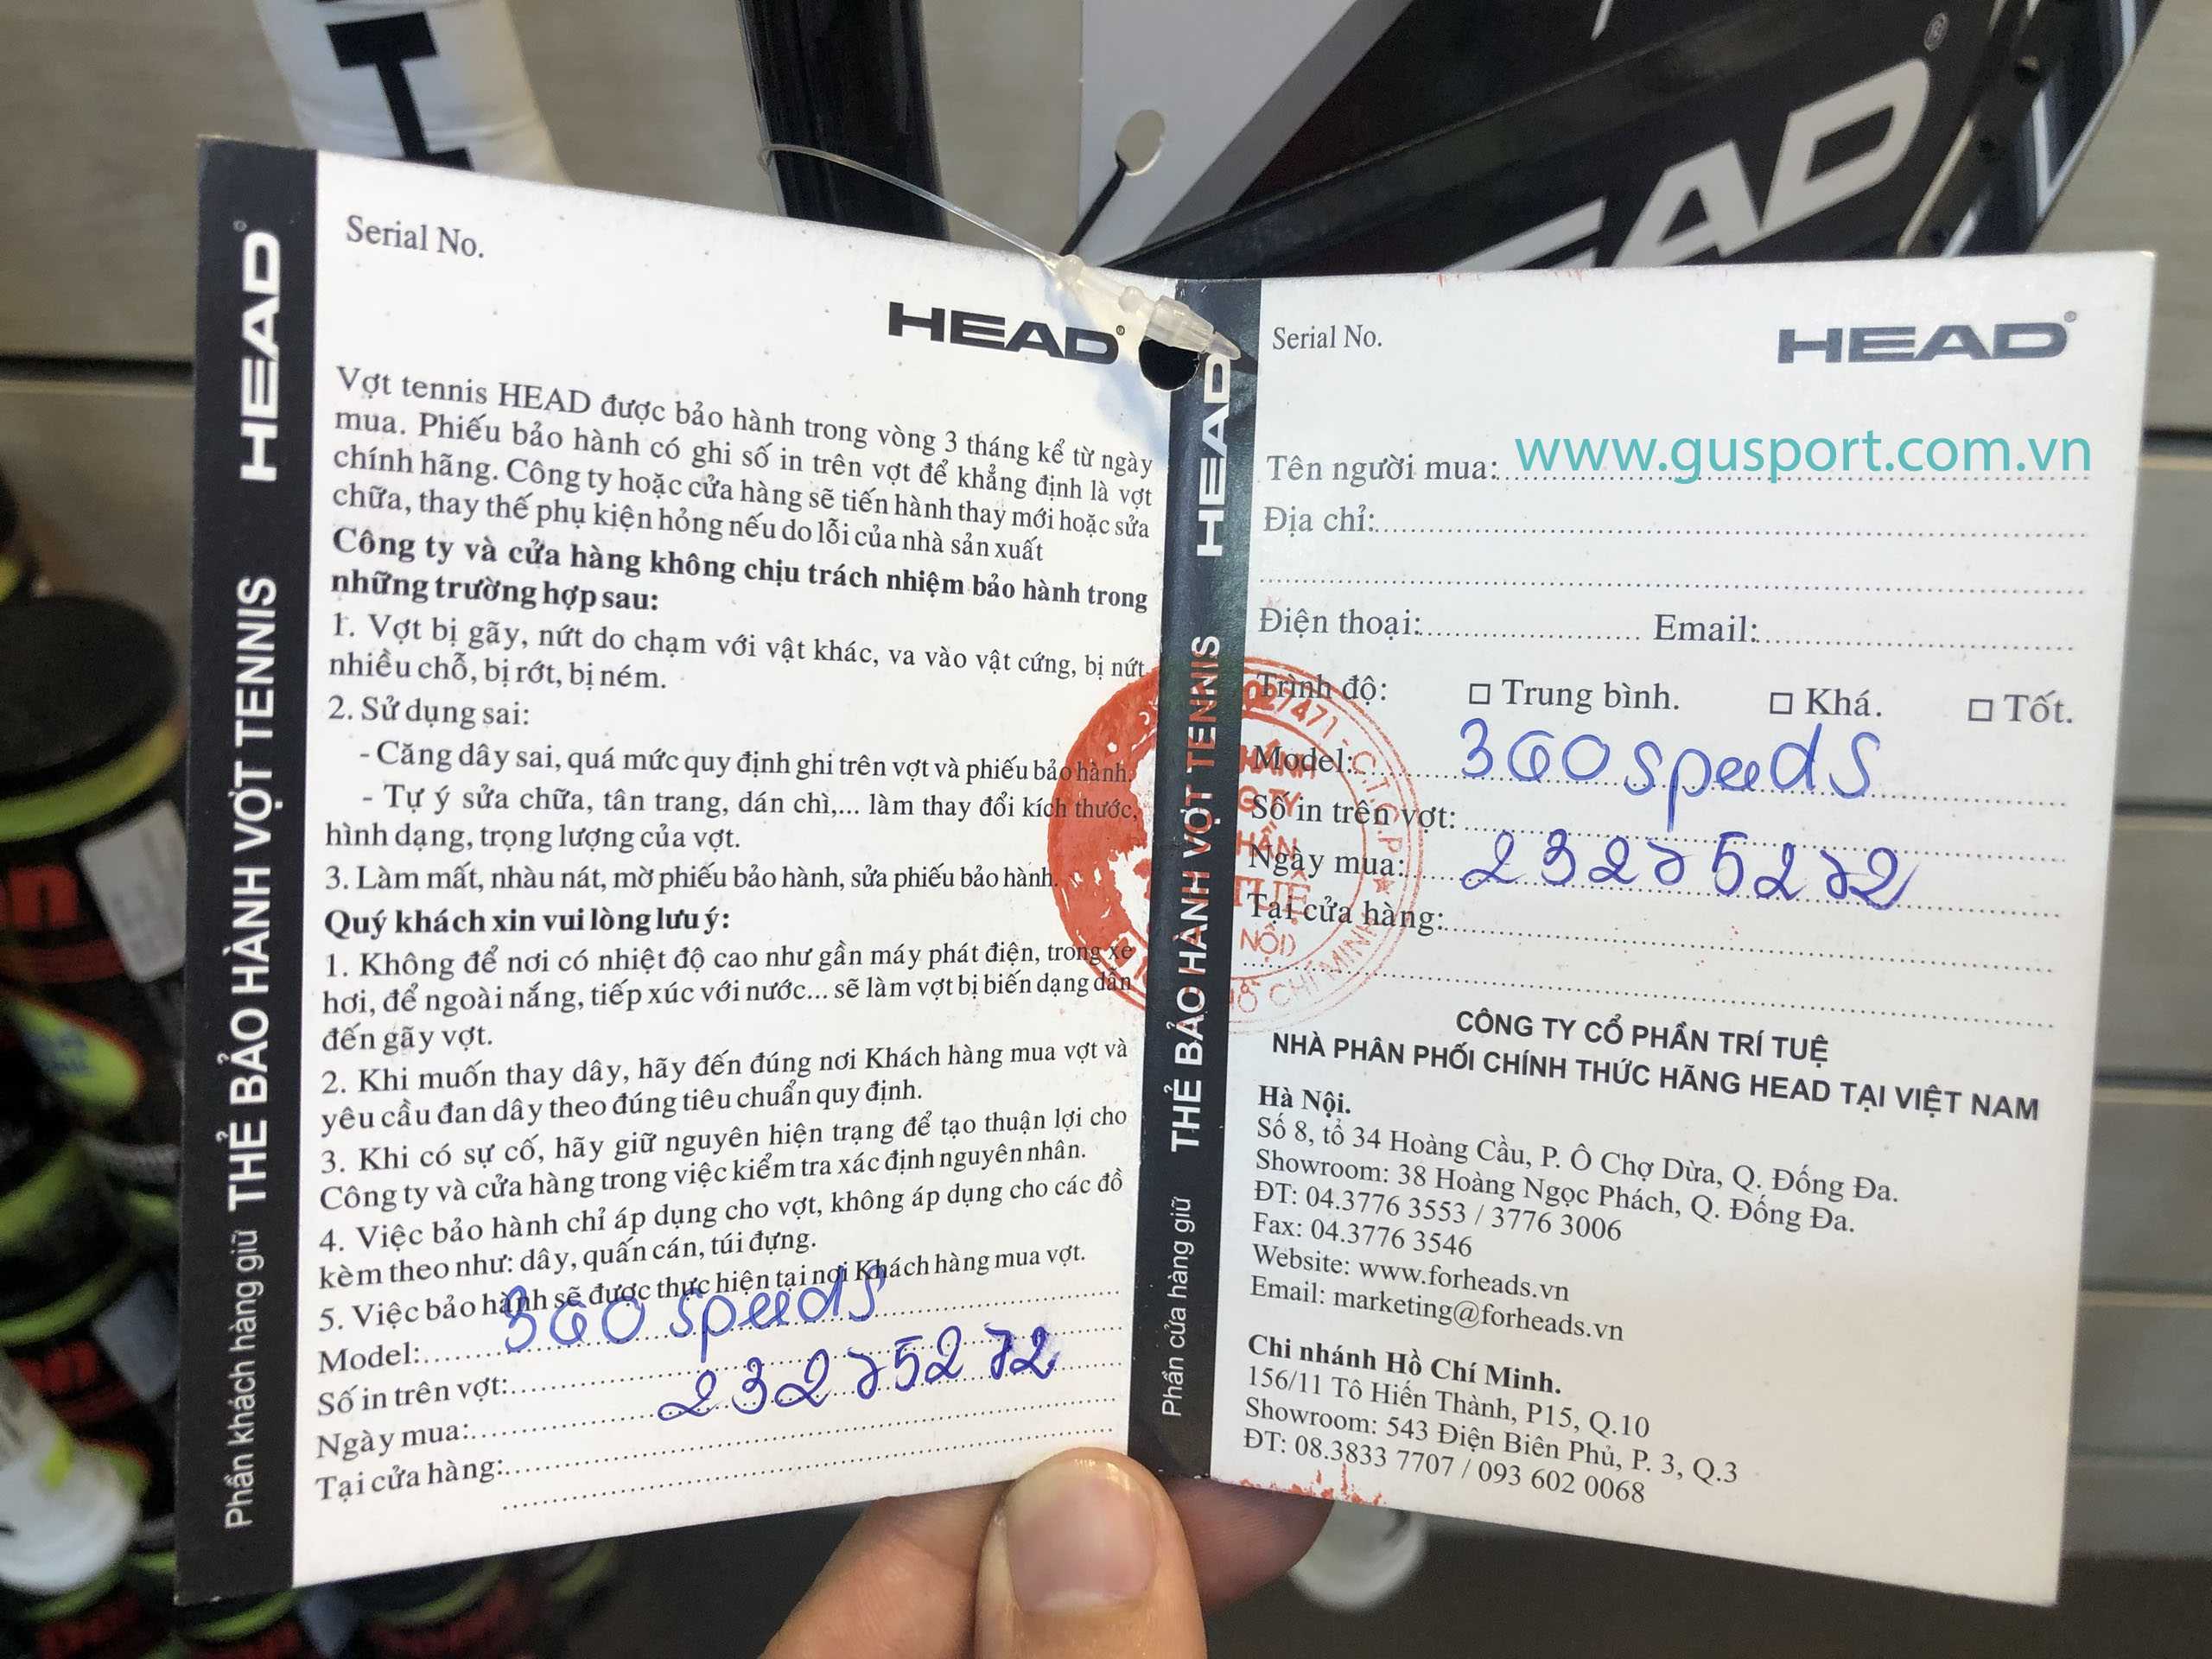 HEAD
THẺ BẢO HÀNH VỢT TENNIS
Phần khách hàng giữ
Serial No.
HEAD
Vợt tennis HEAD được bảo hành trong vòng 3 tháng kể từ ngày
mua. Phiếu bảo hành có ghi số in trên vợt để khẳng định là vợt
chính hãng. Công ty hoặc cửa hàng sẽ tiến hành thay mới hoặc sửa
chữa, thay thế phụ kiện hỏng nếu do lỗi của nhà sản xuất
Công ty và cửa hàng không chịu trách nhiệm bảo hành trong
những trường hợp sau:
1. Vợt bị gãy, nứt do chạm với vật khác, va vào vật cứng, bị nứt
nhiều chỗ, bị rớt, bị ném.
2. Sử dụng sai:
- Căng dây sai, quá mức quy định ghi trên vợt và phiếu bảo hành.
- Tự ý sửa chữa, tân trang, dán chì,... làm thay đổi kích thước,
hình dạng, trọng lượng của vợt.
3. Làm mất, nhàu nát, mờ phiếu bảo hành, sửa phiếu bảo hành.
Quý khách xin vui lòng lưu ý:
1. Không để nơi có nhiệt độ cao như gần máy phát điện, trong xe
hơi, để ngoài nắng, tiếp xúc với nước... sẽ làm vợt bị biến dạng dẫn
đến gãy vợt.
2. Khi muốn thay dây, hãy đến đúng nơi Khách hàng mua vợt và
yêu cầu đan dây theo đúng tiêu chuẩn quy định.
3. Khi có sự cố, hãy giữ nguyên hiện trạng để tạo thuận lợi cho
Công ty và cửa hàng trong việc kiểm tra xác định nguyên nhân.
4. Việc bảo hành chỉ áp dụng cho vợt, không áp dụng cho các đồ
kèm theo như: dây, quấn cán, túi đựng.
5. Việc bảo hành sẽ được thực hiện tại nơi Khách hàng mua vợt.
Model: 360 speed S
Số in trên vợt:
23275272
Ngày mua:
Tại cửa hàng:
HEAD
THẺ BẢO HÀNH VỢT TENNIS
Phần cửa hàng giữ
Serial No.
HEAD
Tên người mua: www.gusport.com.vn
Địa chỉ:
Điện thoại: Email:
Trình độ: Trung bình. Khá. Tốt.
Model: 360 speed S
Số in trên vợt:
Ngày mua: 23275272
Tại cửa hàng:
CÔNG TY CỔ PHẦN TRÍ TUỆ
NHÀ PHÂN PHỐI CHÍNH THỨC HÃNG HEAD TẠI VIỆT NAM
Hà Nội.
Số 8, tổ 34 Hoàng Cầu, P. Ô Chợ Dừa, Q. Đống Đa.
Showroom: 38 Hoàng Ngọc Phách, Q. Đống Đa.
ĐT: 04.3776 3553 / 3776 3006
Fax: 04.3776 3546
Website: www.forheads.vn
Email: marketing@forheads.vn
Chi nhánh Hồ Chí Minh.
156/11 Tô Hiến Thành, P15, Q.10
Showroom: 543 Điện Biên Phủ, P. 3, Q.3
ĐT: 08.3833 7707 / 093 602 0068